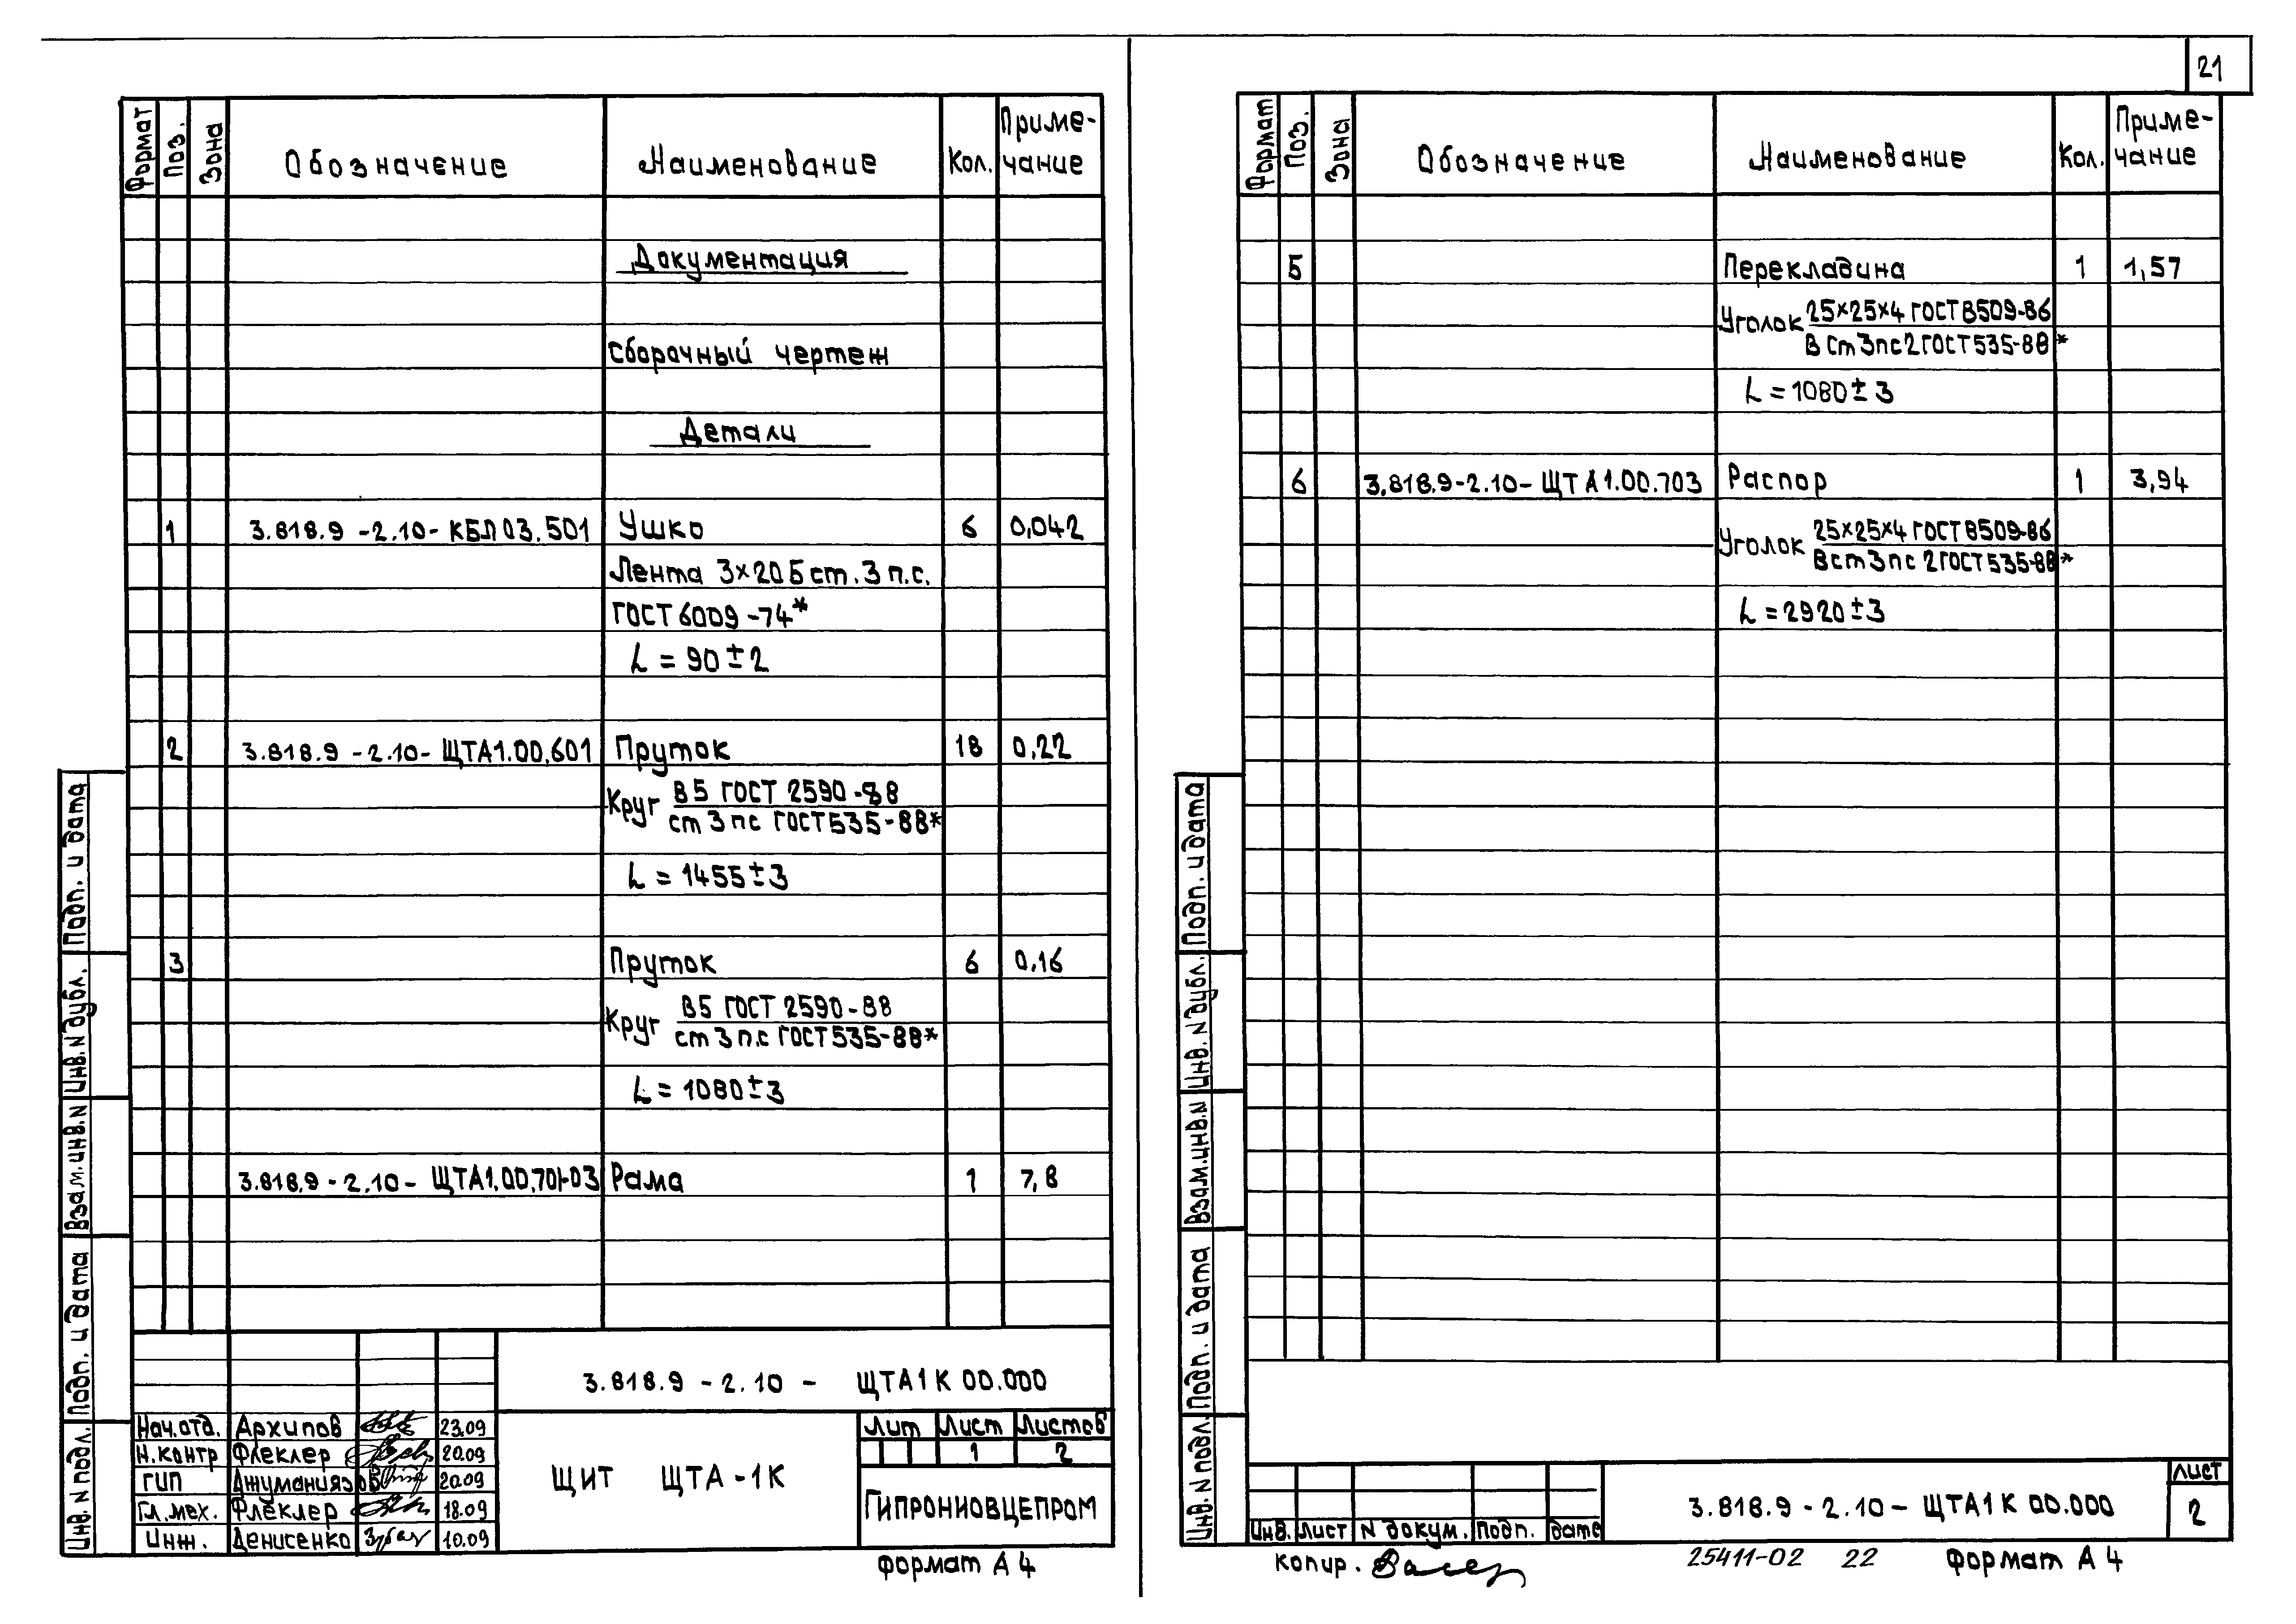 21
Формат Поз. Зона Обозначение Наименование Кол. Приме-
чание
Документация
сборочный чертеж
Детали
1 3.818.9 -2.10- КБЛ 03.501 Ушко 6 0,042
Лента 3×20 Б ст. 3 п.с.
ГОСТ 6009-74*
L = 90±2
2 3.818.9 -2.10- ЩТА1.00.601 Пруток 18 0,22
Круг В5 ГОСТ 2590-88
ст 3 пс ГОСТ 535-88*
L = 1455±3
3 Пруток 6 0,16
Круг В5 ГОСТ 2590-88
ст 3 п.с ГОСТ 535-88*
L = 1080±3
3.818.9 -2.10- ЩТА1.00.701-03 Рама 1 7,8
3.818.9 - 2.10 - ЩТА1К 00.000
Нач.отд. Архипов 23.09
Н.контр Флеклер 20.09
ГИП Джуманиязов 20.09
Гл.мех. Флеклер 18.09
Инж. Денисенко 10.09
ЩИТ ЩТА-1К
Лит Лист Листов
1 2
Гипрониовцепром
Формат А4
Подп. и дата
Инв. N дубл.
Взам. инв. N
Подп. и дата
Инв. N подл.
Формат Поз. Зона Обозначение Наименование Кол. Приме-
чание
5 Перекладина 1 1,57
Уголок 25×25×4 ГОСТ 8509-86
В ст 3 пс 2 ГОСТ 535-88*
L = 1080±3
6 3.818.9-2.10- ЩТА1.00.703 Распор 1 3,94
Уголок 25×25×4 ГОСТ 8509-86
В ст 3 пс 2 ГОСТ 535-88*
L = 2920±3
Подп. и дата
Инв. N дубл.
Взам. инв. N
Подп. и дата
Инв. N подл.
Инв. Лист N докум. Подп. дата
3.818.9 - 2.10 - ЩТА1К 00.000
лист
2
копир.
25411-02 22
Формат А4